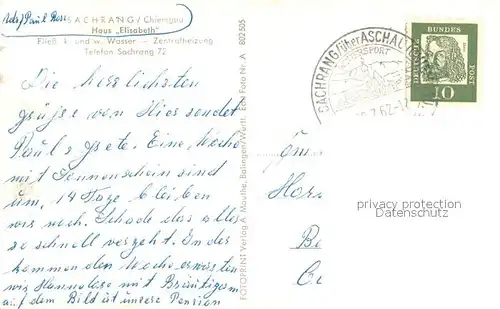 Adr. Paul
SACHRANG/Chiemgau
Haus „Elisabeth"
Fließ. k. und w. Wasser – Zentralheizung
Telefon Sachrang 72
Die herzlichsten
grüsse von Hier sendet
Paul u. Grete. Eine Woche
mit Sonnenschein sind
um, 14 Tage bleiben
wir noch. Schade das alles
so schnell vergeht. In der
kommenden Woche erwarten
wir Hannelore mit Bräutigam
auf dem Bild ist unsere Pension
FOTOPRINT Verlag A. Mauthe, Balingen/Württ. Ein Foto Nr. A 802505
SACHRANG über ASCHAU
DEUTSCHE BUNDES POST
10
privacy protection
Datenschutz